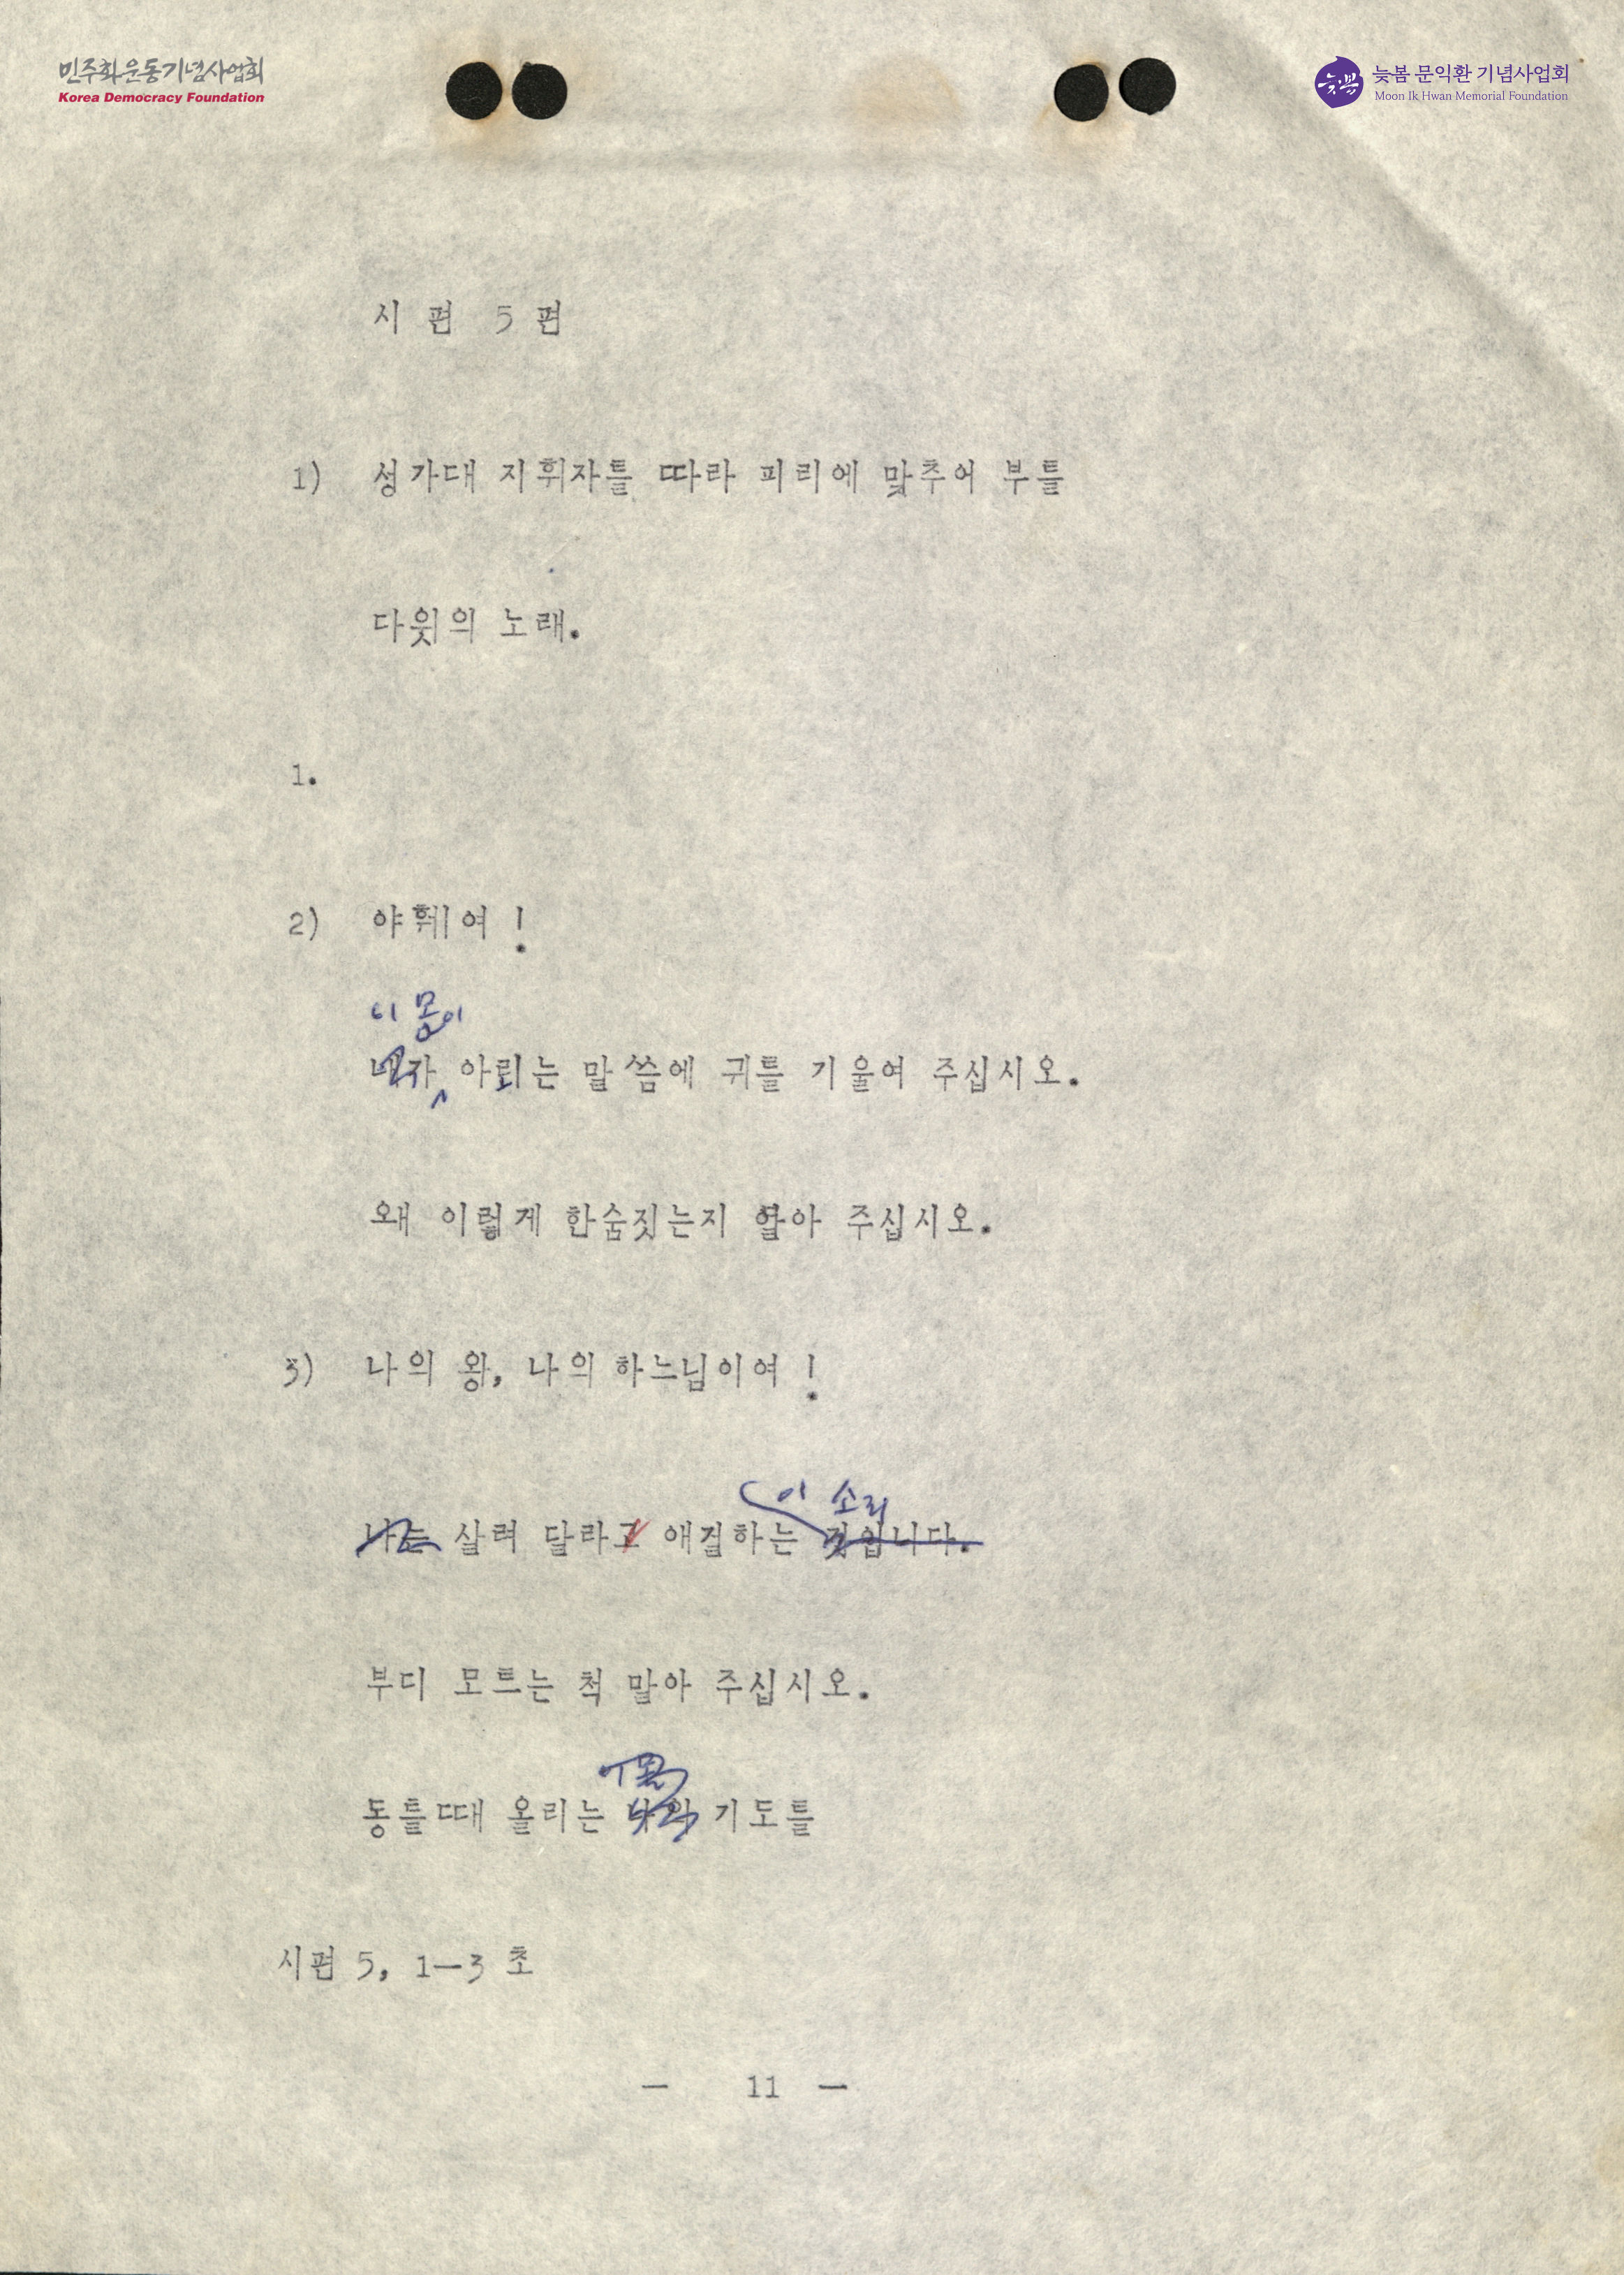 민주화운동기념사업회
Korea Democracy Foundation
늦봄
늦봄 문익환 기념사업회
Moon Ik Hwan Memorial Foundation
시 편 5 편
1) 성가대 지휘자를 따라 피리에 맞추어 부를
다윗의 노래.
1.
2) 야훼여 !
이 몸이
내가 아뢰는 말씀에 귀를 기울여 주십시오.
왜 이렇게 한숨짓는지 알아 주십시오.
3) 나의 왕, 나의 하느님이여 !
이 소리
나는 살려 달라고 애걸하는 것입니다.
부디 모르는 척 말아 주십시오.
동틀때 올리는 나의 기도를
시편 5, 1—3 초
— 11 —